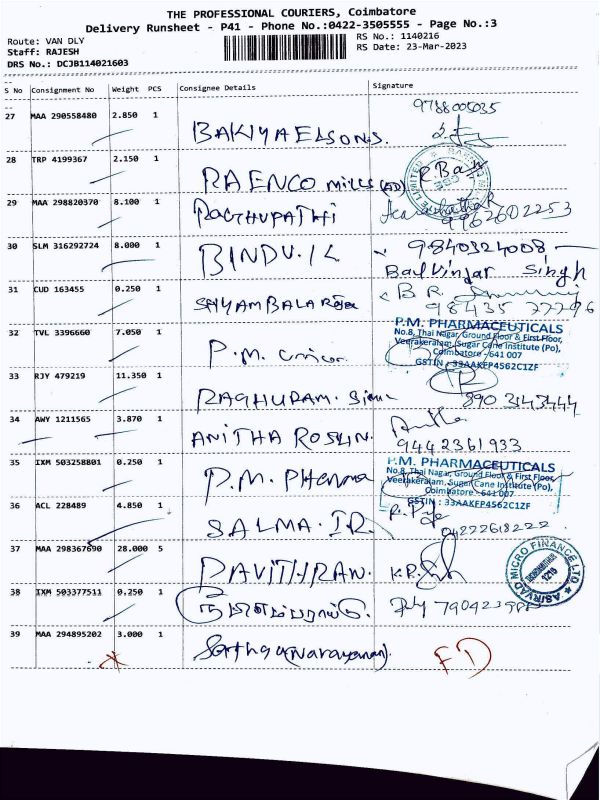 THE PROFESSIONAL COURIERS, Coimbatore
Delivery Runsheet - P41 - Phone No.:0422-3505555 - Page No.:3
Route: VAN DLY
Staff: RAJESH
DRS No.: DCJB114021603
RS No.: 1140216
RS Date: 23-Mar-2023
S No Consignment No Weight PCS Consignee Details Signature
27 MAA 290558480 2.850 1 9788005035
28 TRP 4199367 2.150 1 RAENCO mills
29 MAA 298820370 8.100 1 RAGHUPATHI 9962602253
30 SLM 316292724 8.000 1 BINDU.K 9840324008
Balvinjar Singh
31 CUD 163455 0.250 1 B R.
98435 77796
32 TVL 3396660 7.050 1 P.M.
P.M. PHARMACEUTICALS
No.8, Thai Nagar, Ground Floor & First Floor,
Veerakeralam, Sugar Cane Institute (Po),
Coimbatore - 641 007
GSTIN : 33AAKFP4562C1ZF
33 RJY 479219 11.350 1 RAGHURAM.
34 AWY 1211565 3.870 1 ANITHA ROSLIN.
9442361933
35 IXM 503258801 0.250 1 P.M. Pharma
P.M. PHARMACEUTICALS
No.8, Thai Nagar, Ground Floor & First Floor,
Veerakeralam, Sugar Cane Institute (Po),
Coimbatore - 641 007
GSTIN : 33AAKFP4562C1ZF
36 ACL 228489 4.850 1 SALMA.
04222618222
37 MAA 298367690 28.000 5 PAVITHRAN. K.R.
ASIRVAD MICRO FINANCE LTD
38 IXM 503377511 0.250 1
39 MAA 294895202 3.000 1 FD